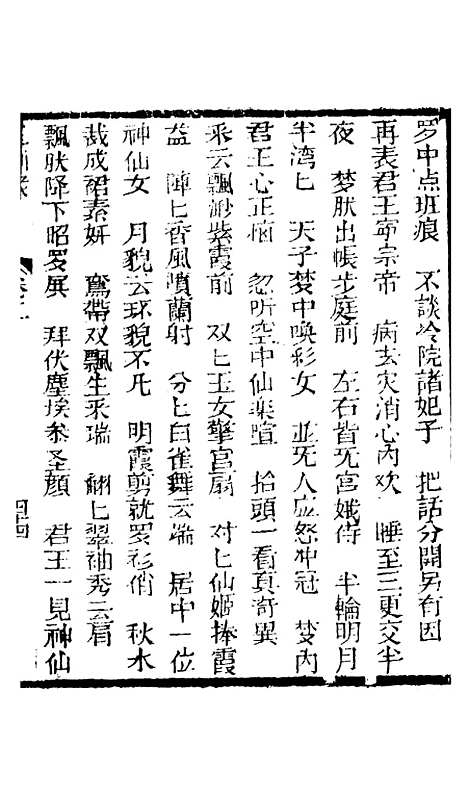 罗中点班痕　不談冷院諸妃子　把話分開另有因
再表君王寕宗帝　病去灾消心內欢　睡至三更交半
夜　梦朕出帳步庭前　左右皆旡宮娥侍　半輪明月
半湾匕　天子梦中喚彩女　並旡人应怒冲冠　梦內
君王心正悩　忽听空中仙楽喧　抬頭一看真竒異
釆云飄渺紫霞前　双匕玉女擎宮扇　对匕仙姬捧霞
益　陣匕香風噴蘭射　分匕白雀舞云端　居中一位
神仙女　月貌云环貌不凡　明霞剪就罗衫俏　秋水
裁成裙素妍　鸞帶双飄生釆瑞　翩匕翠袖秀云肩
飄肰降下昭罗展　拜伏塵埃叅圣顔　君王一見神仙
卷二
四十四